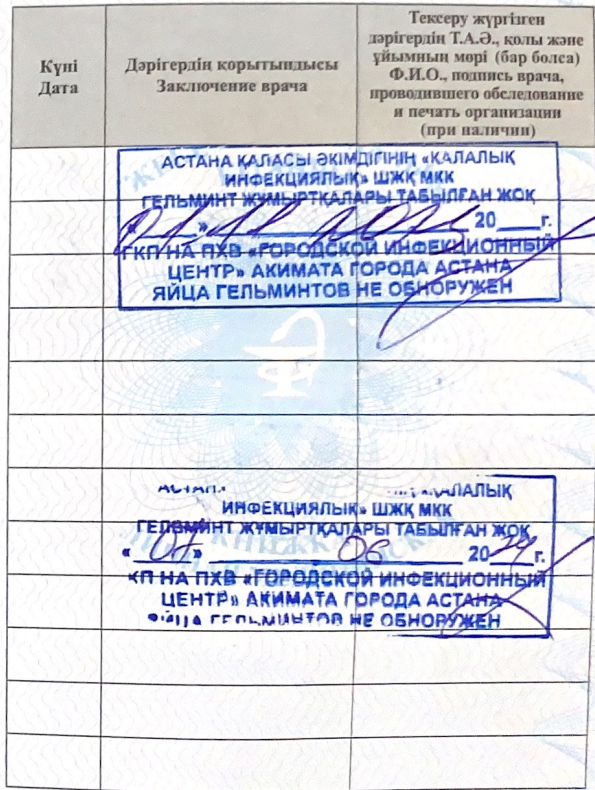 Күні
Дата
Дәрігердің қорытындысы
Заключение врача
Тексеру жүргізген
дәрігердің Т.А.Ә., қолы және
ұйымның мөрі (бар болса)
Ф.И.О., подпись врача,
проводившего обследование
и печать организации
(при наличии)
АСТАНА ҚАЛАСЫ ӘКІМДІГІНІҢ «ҚАЛАЛЫҚ
ИНФЕКЦИЯЛЫҚ» ШЖҚ МКК
ГЕЛЬМИНТ ЖҰМЫРТҚАЛАРЫ ТАБЫЛҒАН ЖОҚ
20 г.
ГКП НА ПХВ «ГОРОДСКОЙ ИНФЕКЦИОННЫЙ
ЦЕНТР» АКИМАТА ГОРОДА АСТАНА
ЯЙЦА ГЕЛЬМИНТОВ НЕ ОБНОРУЖЕН
ИНФЕКЦИЯЛЫҚ» ШЖҚ МКК
ГЕЛЬМИНТ ЖҰМЫРТҚАЛАРЫ ТАБЫЛҒАН ЖОҚ
«07» 06 2024 г.
КП НА ПХВ «ГОРОДСКОЙ ИНФЕКЦИОННЫЙ
ЦЕНТР» АКИМАТА ГОРОДА АСТАНА
ГЕЛЬМИНТОВ НЕ ОБНОРУЖЕН